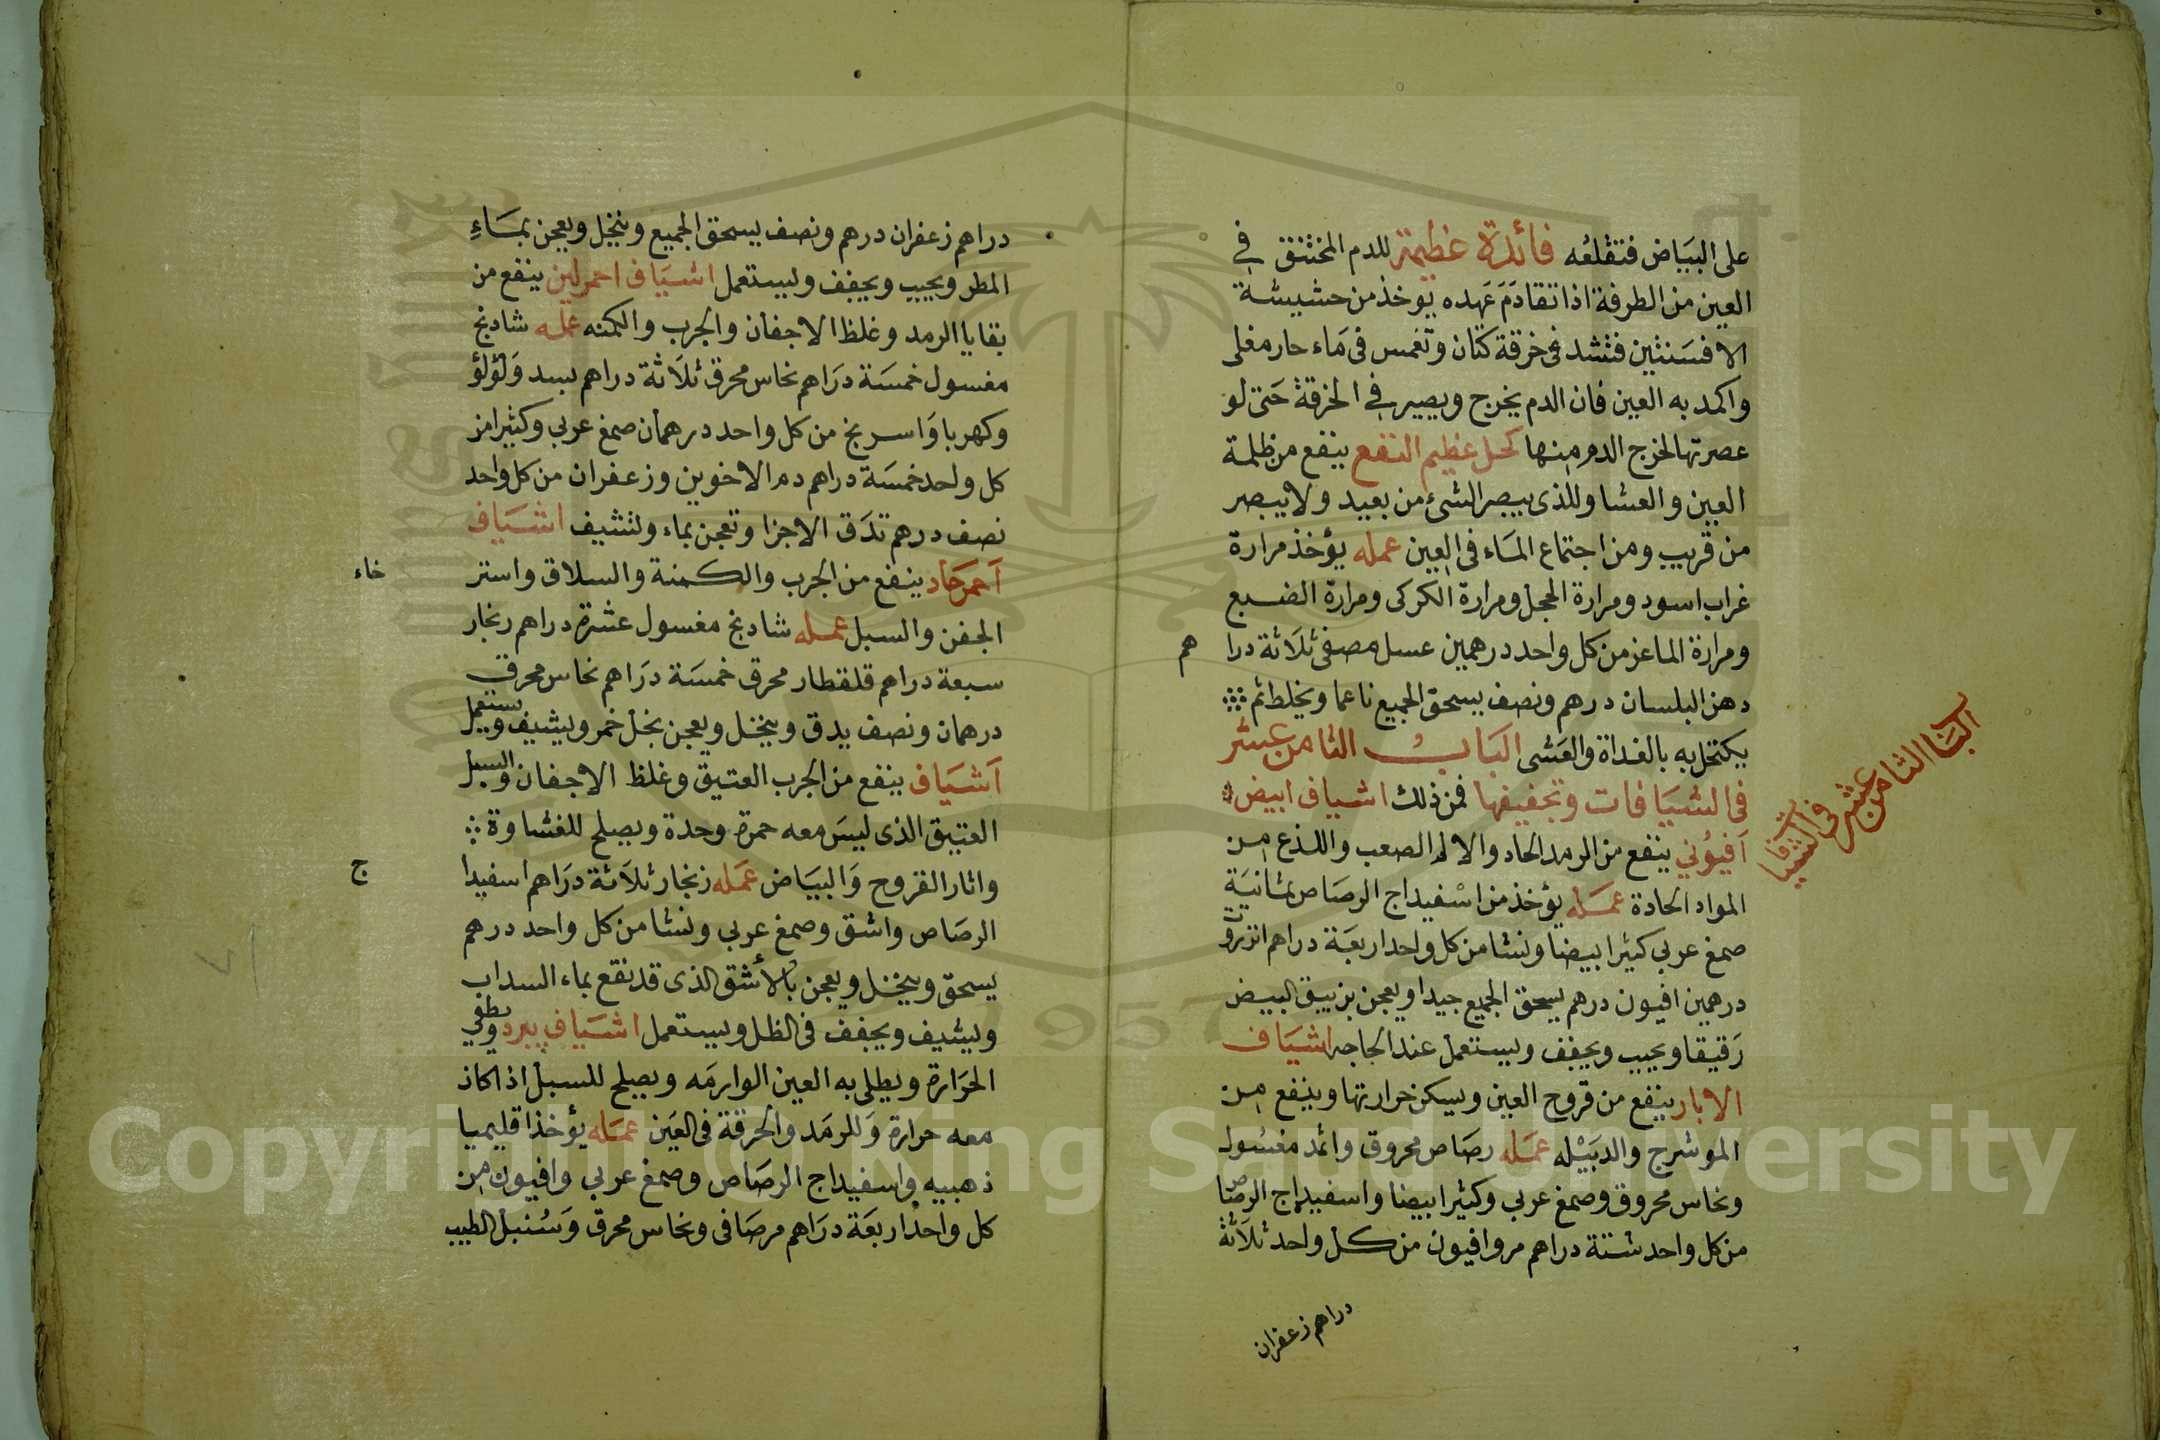 على البياض فتقلعه فائدة عظيمة للدم المختنق في
العين من الطرفة اذا تقادم عهده يوخذ من حشيشة
الافسنثين فتشد في خرقة كتان وتغمس في ماء حار مغلى
واكمد به العين فان الدم يخرج ويصير في الخرقة حتى لو
عصرتها لخرج الدم منها كحل عظيم النفع ينفع من ظلمة
العين والعشا وللذى يبصر الشيء من بعيد ولا يبصر
من قريب ومن اجتماع الماء في العين عمله يؤخذ مرارة
غراب اسود ومرارة الحجل ومرارة الكركى ومرارة الضبع
ومرارة الماعز من كل واحد درهمين عسل مصفى ثلاثة درا هم
دهن البلسان درهم ونصف يسحق الجميع ناعما ويخلط ثم
يكتحل به بالغداة والعشى الباب الثامن عشر
في الشيافات وتجفيفها فمن ذلك اشياف ابيض
افيوني ينفع من الرمد الحاد والالم الصعب واللذع من
المواد الحادة عمله يؤخذ من اسفيداج الرصاص ثمانية
صمغ عربي كثيرا بيضا ونشا من كل واحد اربعة دراهم انزروت
درهمين افيون درهم يسحق الجميع جيدا ويعجن ببياض البيض
رقيقا ويحبب ويجفف ويستعمل عند الحاجه اشياف
الابار ينفع من قروح العين ويسكن حرارتها وينفع من
الموشرج والدبيله عمله رصاص محروق واثمد مغسول
ونحاس محروق وصمغ عربي وكثيرا بيضا واسفيداج الرصاص
من كل واحد ستة دراهم مر وافيون من كل واحد ثلاثة
دراهم زعفران
الباب الثامن عشر في الشيافات
دراهم زعفران درهم ونصف يسحق الجميع وينخل ويعجن بماء
المطر ويحبب ويجفف ويستعمل اشياف احمر لين ينفع من
بقايا الرمد وغلظ الاجفان والجرب والكمنه عمله شادنج
مغسول خمسة دراهم نحاس محرق ثلاثة دراهم بسد ولؤلؤ
وكهربا واسرنج من كل واحد درهمان صمغ عربي وكثيرا من
كل واحد خمسة دراهم دم الاخوين وزعفران من كل واحد
نصف درهم تدق الاجزا وتعجن بماء وتشيف اشياف
احمر حاد ينفع من الجرب والكمنة والسلاق واسترخاء
الجفن والسبل عمله شادنج مغسول عشرة دراهم زنجار
سبعة دراهم قلقطار محرق خمسة دراهم نحاس محرق
درهمان ونصف يدق وينخل ويعجن بخل خمر ويشيف ويستعمل
اشياف ينفع من الجرب العتيق وغلظ الاجفان والسبل
العتيق الذى ليس معه حمرة وحدة ويصلح للغشاوة
واثار القروح والبياض عمله زنجار ثلاثة دراهم اسفيدا ج
الرصاص واشق وصمغ عربي ونشا من كل واحد درهم
يسحق وينخل ويعجن بالأشق الذى قد نقع بماء السداب
ويشيف ويجفف في الظل ويستعمل اشياف يبرد ويطفي
الحرارة ويطلى به العين الوارمه ويصلح للسبل اذا كان
معه حرارة وللرمد والحرقة في العين عمله يؤخذ اقليميا
ذهبيه واسفيداج الرصاص وصمغ عربي وافيون من
كل واحد اربعة دراهم مر صافى ونحاس محرق وسنبل الطيب
Copyright © King Saud University
1957